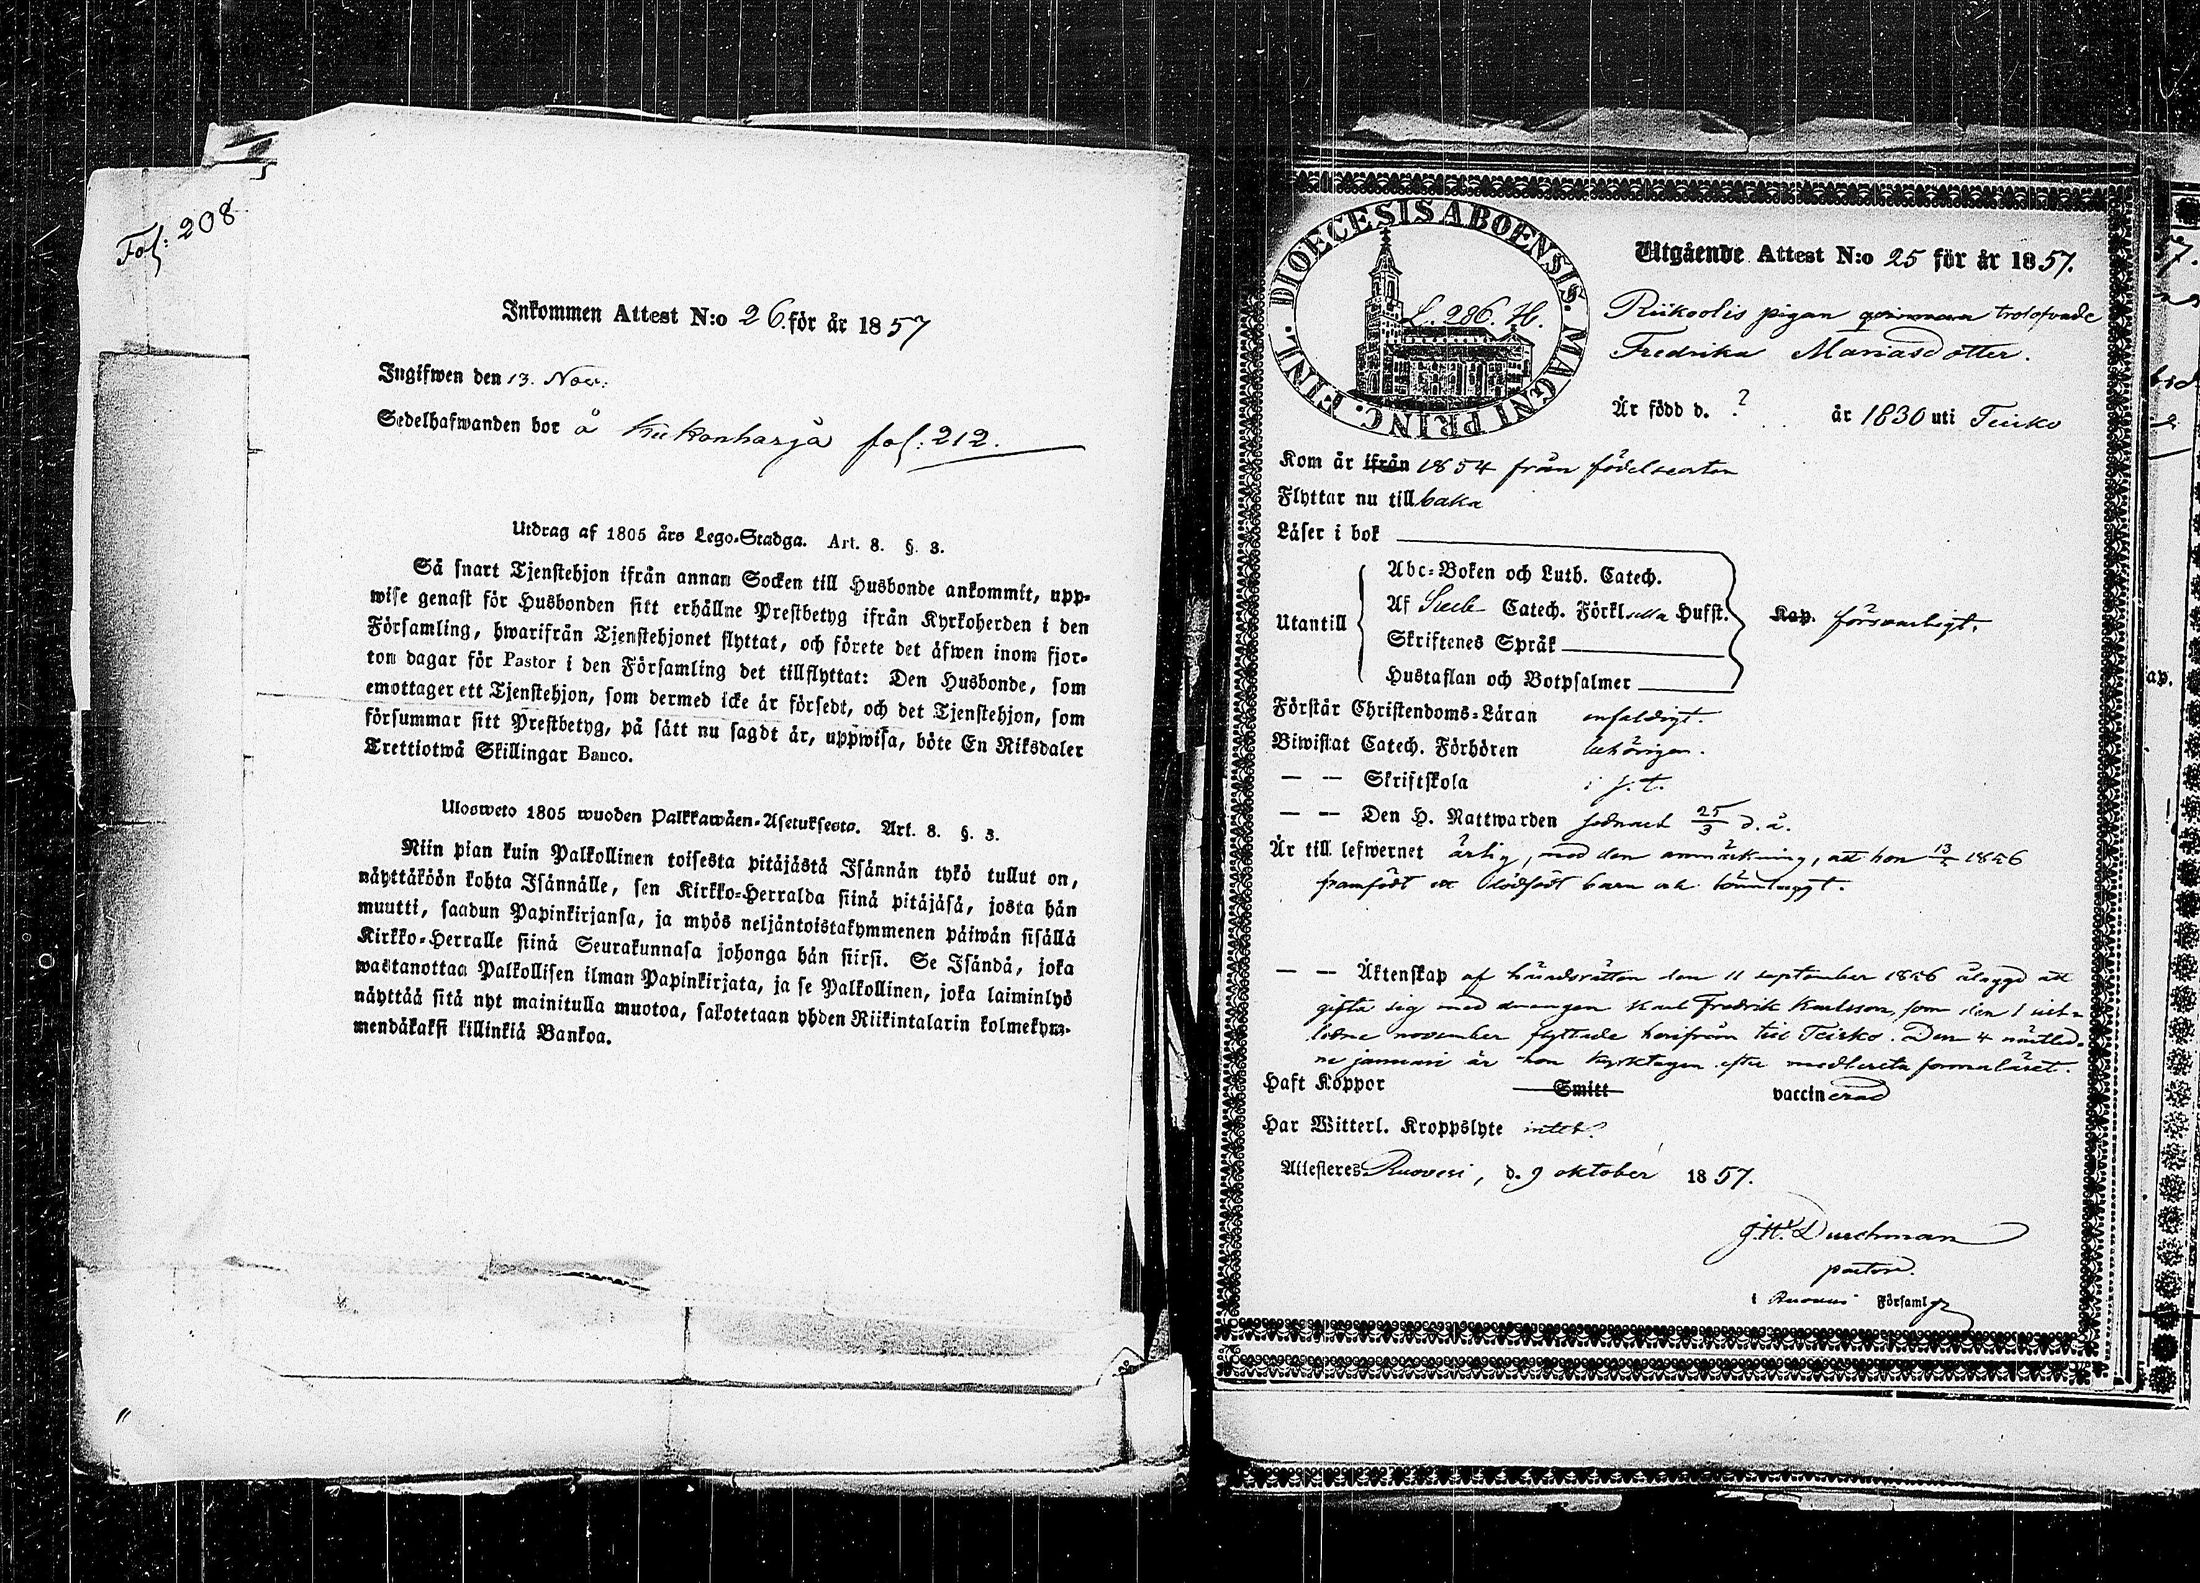 Fol: 208
Inkommen Attest N:o 26. för år 1857
Ingifwen den 13. Nov.
Sedelhafwanden bor å Kukonharja fol: 212.
Utdrag af 1805 års Lego-Stadga. Art. 8. §. 3.
Så snart Tjenstehjon ifrån annan Socken till Husbonde ankommit, upp-
wise genast för Husbonden sitt erhållne Prestbetyg ifrån Kyrkoherden i den
Församling, hwarifrån Tjenstehjonet flyttat, och förete det äfwen inom fjor-
ton dagar för Pastor i den Församling det tillflyttat: Den Husbonde, som
emottager ett Tjenstehjon, som dermed icke är försedt, och det Tjenstehjon, som
försummar sitt Prestbetyg, på sätt nu sagdt är, uppwisa, böte En Riksdaler
Trettiotwå Skillingar Banco.
Ulosweto 1805 wuoden Palkkawäen-Asetuksesta. Art. 8. §. 3.
Niin pian kuin Palkollinen toisesta pitäjästä Isännän tykö tullut on,
näyttäköön kohta Isännälle, sen Kirkko-Herralda siinä pitäjäsä, josta hän
muutti, saadun Papinkirjansa, ja myös neljäntoistakymmenen päiwän sisällä
Kirkko-Herralle siinä Seurakunnasa johonga hän siirsi. Se Isändä, joka
wastanottaa Palkollisen ilman Papinkirjata, ja se Palkollinen, joka laiminlyö
näyttää sitä nyt mainitulla muotoa, sakotetaan yhden Riikintalarin kolmekym-
mendäkaksi killinkiä Bankoa.
DIOECESIS ABOENSIS. MAGNI PRINC. FINL.
L. 286. H.
Utgående Attest N:o 25 för år 1857.
Riikoolis pigan qvinnan trolofvade
Fredrika Mariasdotter.
Är född d. ? år 1830 uti Teisko
Kom år ifrån 1854 från födelseorten
Flyttar nu tillbaka
Läser i bok
Abc-Boken och Luth. Catech.
Utantill Af Sveb. Catech. Förkl. Hufst. Kap. försvarligt.
Skriftenes Språk
Hustaflan och Botpsalmer
Förstår Christendoms-Läran enfaldigt.
Biwistat Catech. Förhören behörigen.
— — Skriftskola i s. t.
— — Den H. Nattwarden sednast 25/3 d. å.
Är till lefwernet ärlig, med den anmärkning, att hon 13/ 1856
framfödt ett dödfödt barn och lönnlaggt.
— — Äktenskap af häradsrätten den 11 september 1856 ålaggd att
gifta sig med drängen Karl Fredrik Karlsson, som den 1 sist-
lidne november flyttade härifrån till Teisko. Den 4 nästled-
ne januari är hon kyrktagen efter medlersta formuläret.
Haft Koppor Smitt vaccinerad
Har Witterl. Kroppslyte intet.
Attesteres Ruovesi, d. 9 oktober 1857.
J. W. Durchman
pastor.
i Ruovesi Församlg